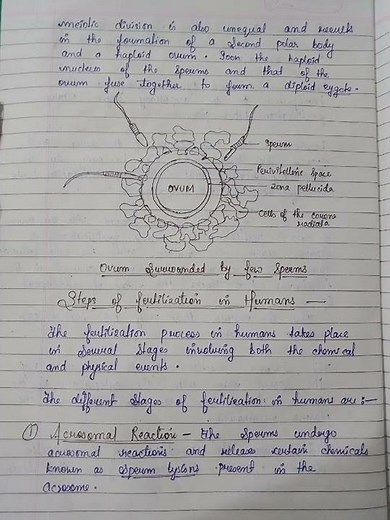 meiotic division is also unequal and results
in the formation of a second polar body
and a haploid ovum. Soon the haploid
nucleus of the sperms and that of the
ovum fuse together to form a diploid zygote.
sperms
Perivitelline Space
zona pellucida
OVUM
Cells of the corona
radiata
Ovum Surrounded by few Sperms
Steps of fertilization in Humans —
The fertilization process in humans takes place
in several stages involving both the chemical
and physical events.
The different stages of fertilization in humans are :-
① Acrosomal Reaction - The sperms undergo
acrosomal reactions and releases certain chemicals
known as sperm lysins present in the
acrosome.